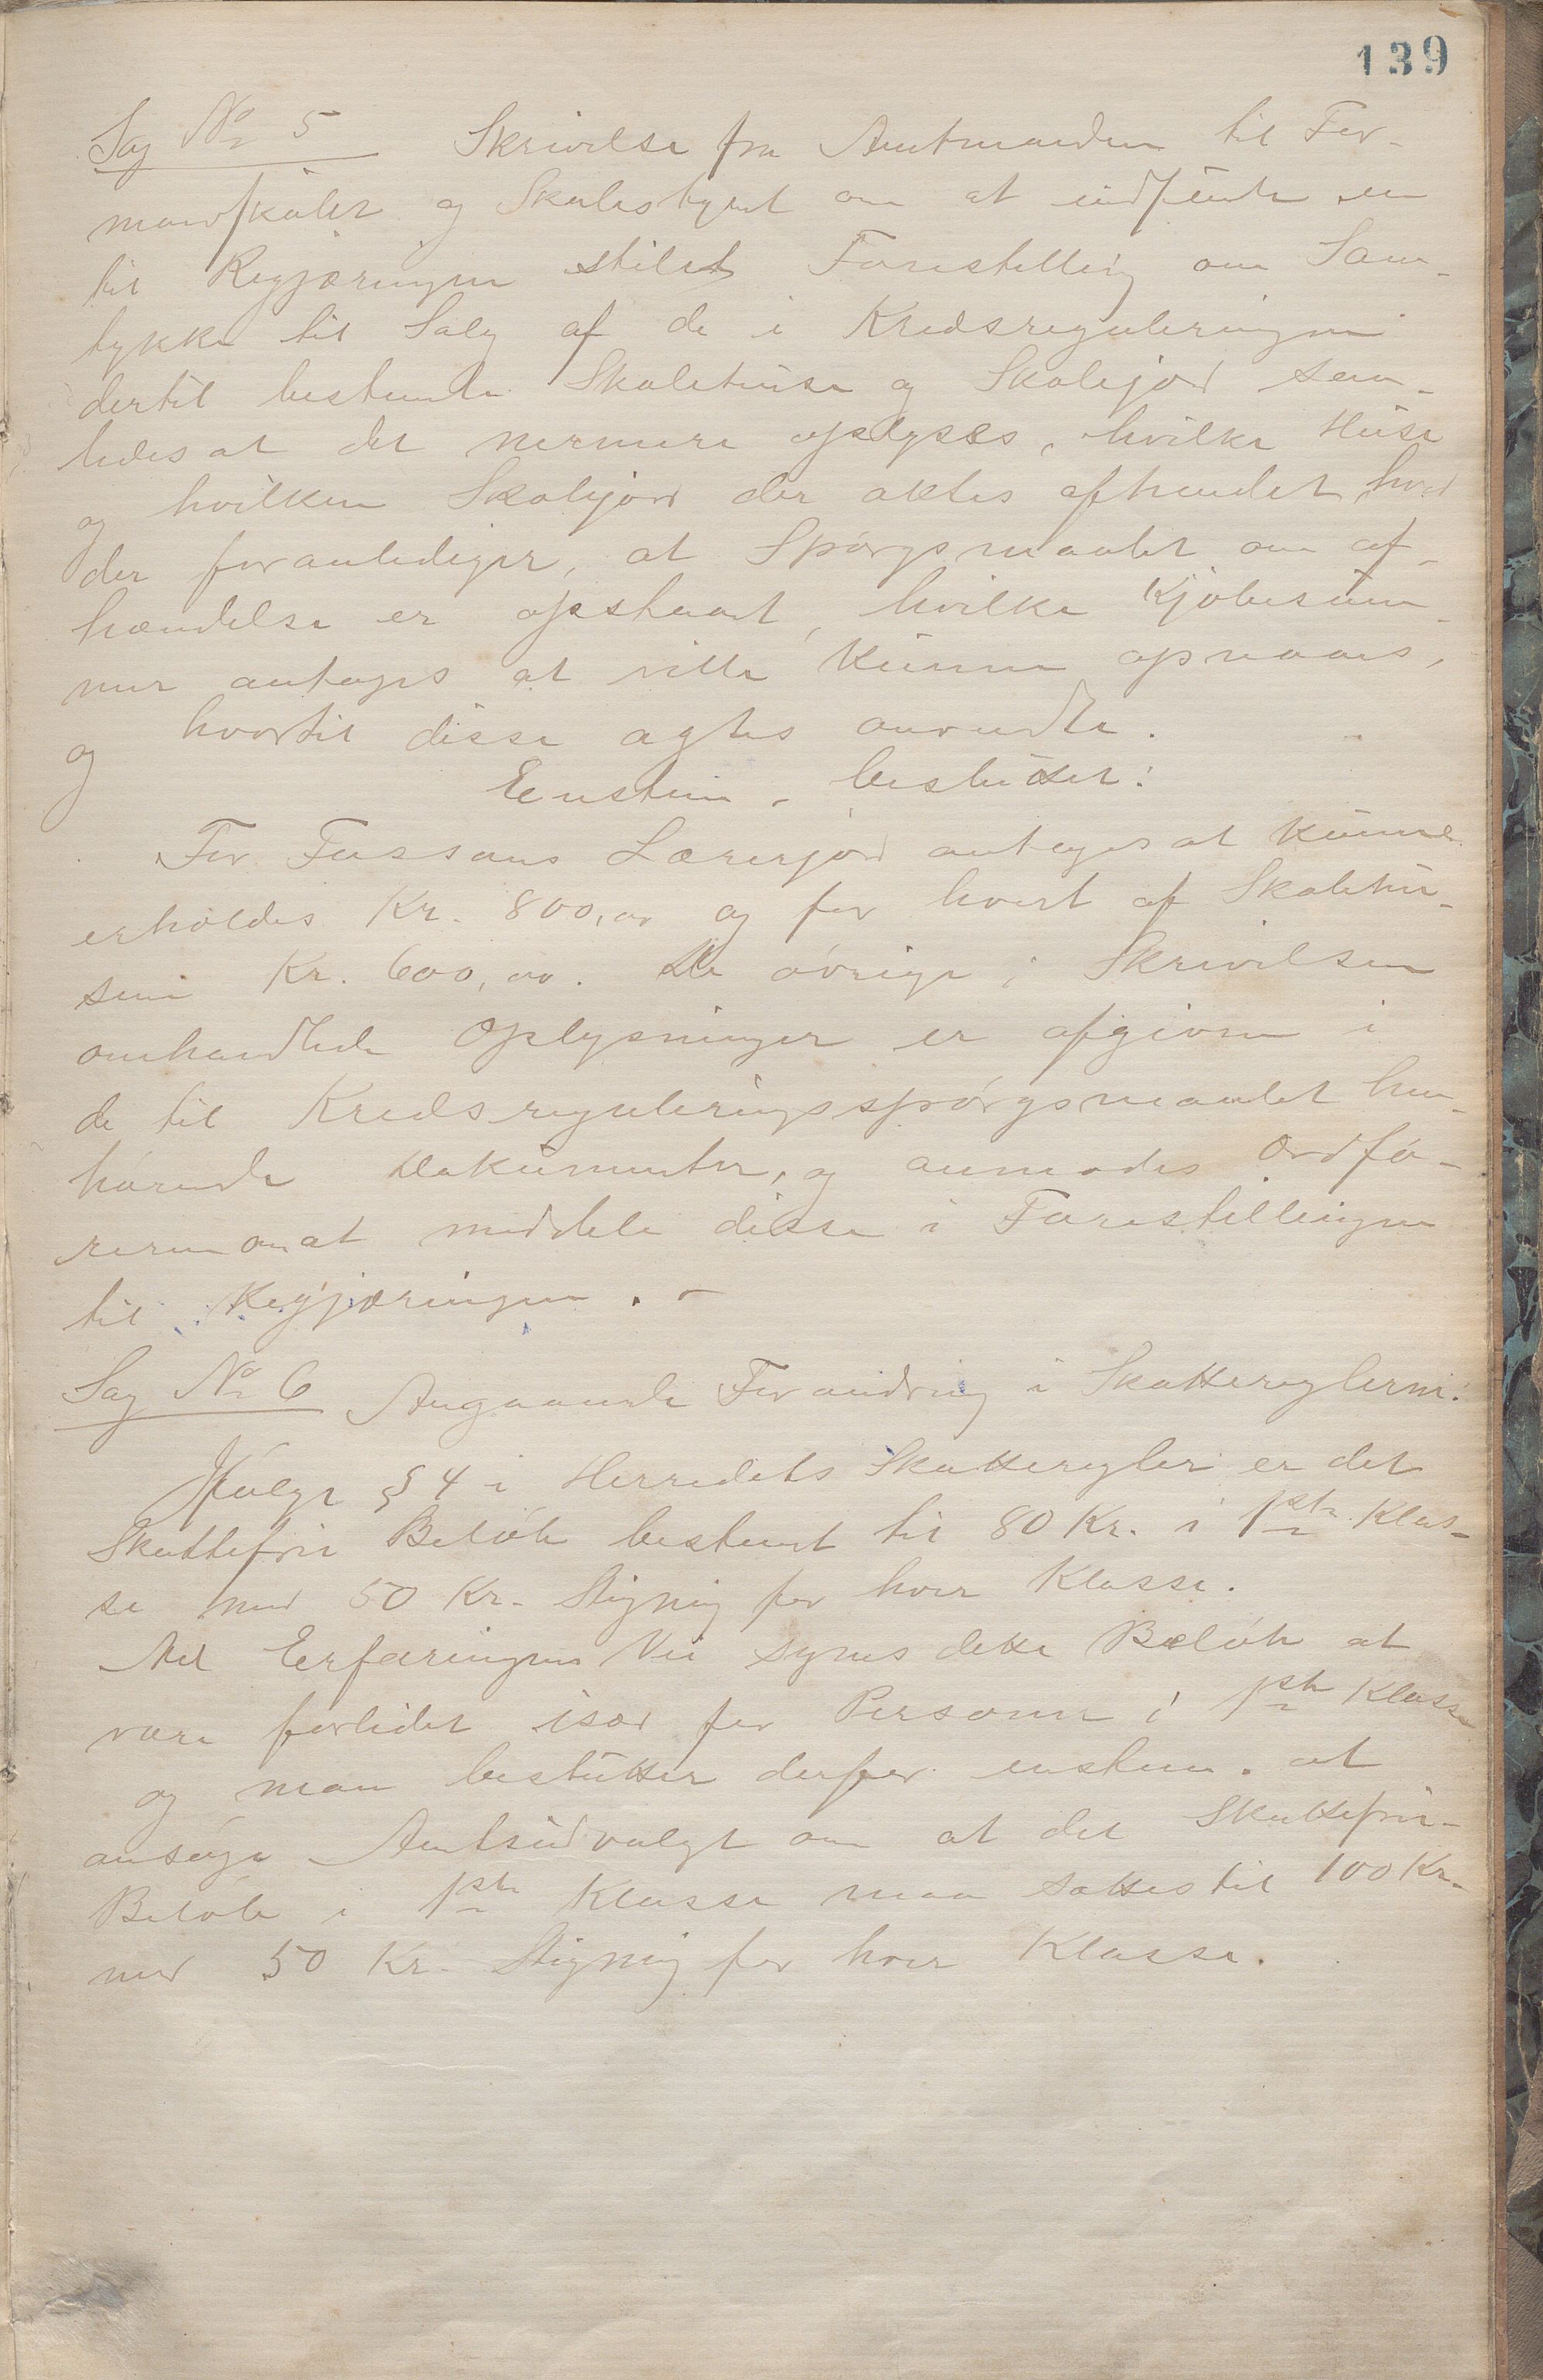 139
Sag No 5 Skrivelse fra Amtmanden til For-
mandskabet og Skolestyret om at indsende en
til Regjæringen stilet Forestilling om Sam-
tykke til Salg af de i Kredsreguleringen
dertil bestemte Skolehuse og Skolejord sam-
tidesat det nærmere oplyses, hvilke Huse
og hvilken Skolejord der aktes afhændet, hvad
der foranlediger, at Spørgsmaalet om af-
hændelse er opstaaet, hvilke Kjøbesum-
mer antages at ville kunne opnaaes,
og hvortil disse agtes anvendte.
Eenstem. besluttet:
For Fossans Lærerjord antages at kunne
erholdes Kr. 800,00 og for hvert af Skolehu-
sene Kr. 600,00. De øvrige i Skrivelsen
omhandlede Oplysninger er afgivne i
de til Kredsreguleringsspørgsmaalet hen-
hørende Dokumenter, og anmodes Ordfø-
reren om at meddele disse i Forestillingen
til Regjæringen. -
Sag No 6 Angaaende Forandring i Skattereglerne:
Ifølge § 4 i Herredets Skatteregler er det
Skattefrie Beløb bestemt til 80 Kr. i 1ste Klas-
se med 50 Kr. Stigning for hver Klasse.
Ad Erfaringens Vei synes dette Beløb at
være forlidet især for Personer i 1ste Klasse
og man beslutter derfor enstem. at
ansøge Amtsudvalget om at det Skattefrie-
Beløb i 1ste Klasse maa sættes til 100 Kr.
med 50 Kr. Stigning for hver Klasse.